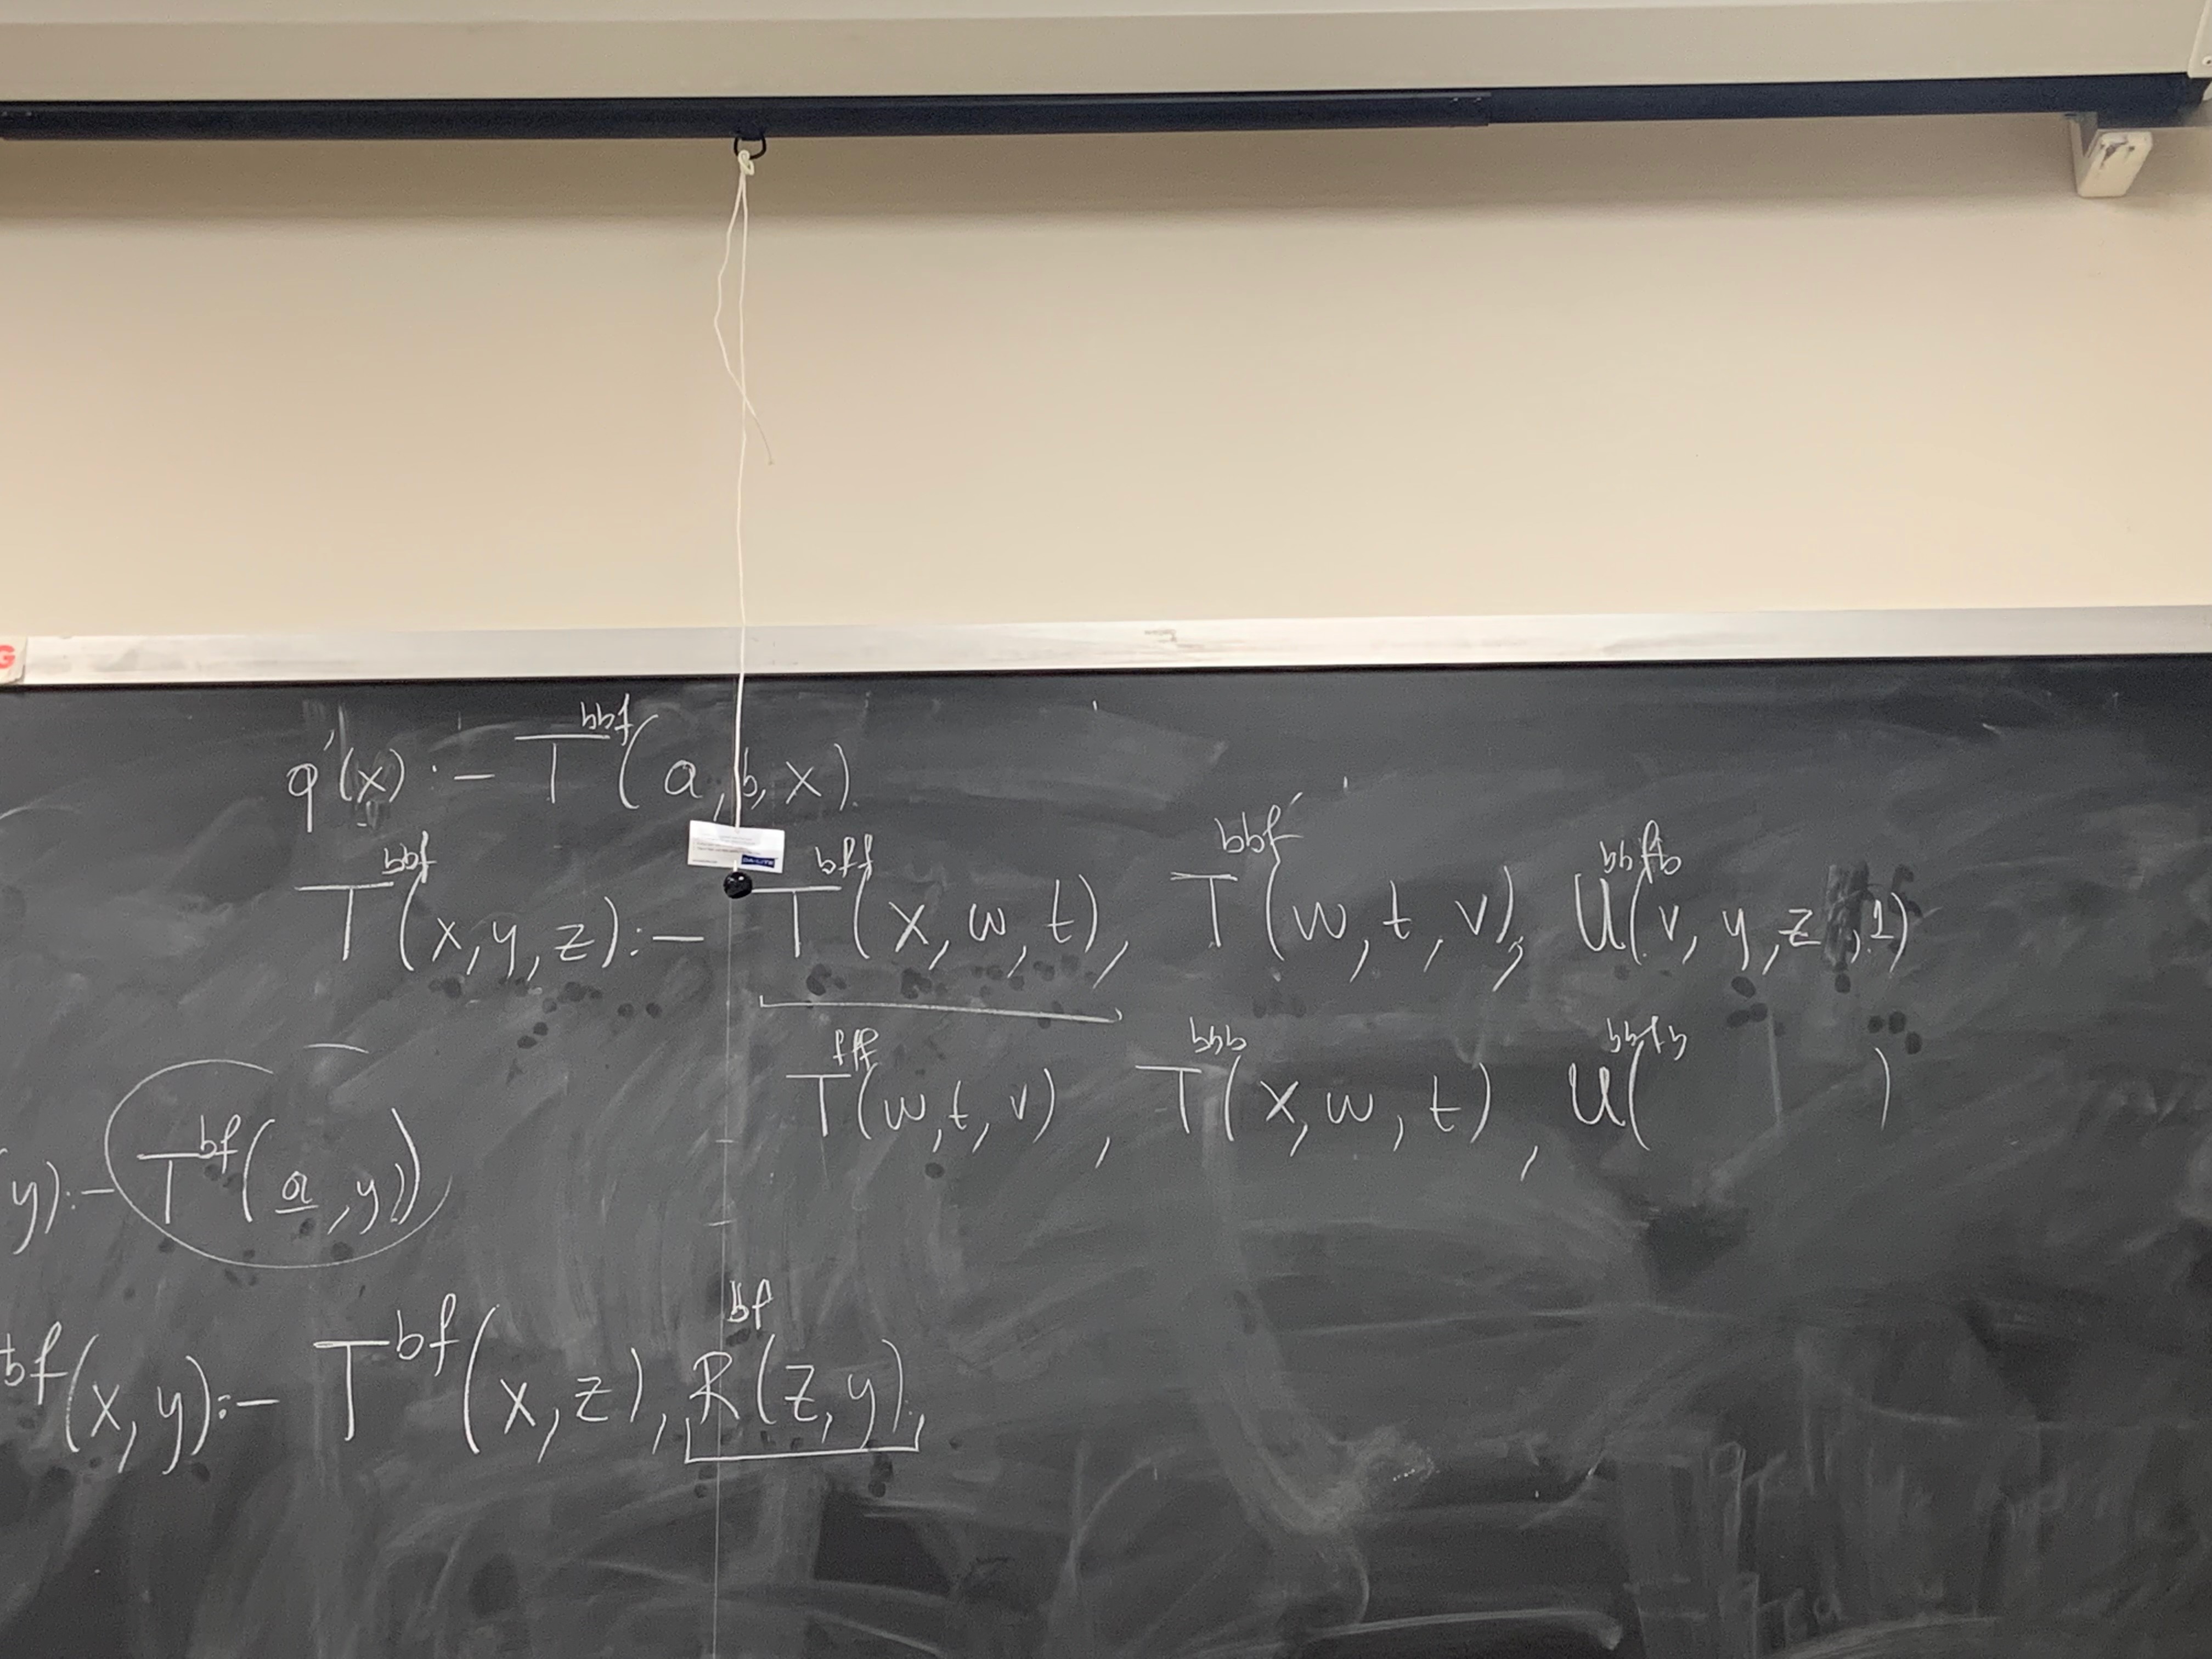 G
q'(x) :- T^bbf(a, b, x)
DA-LITE
T^bbf(x, y, z) :- T^bff(x, w, t), T^bbf(w, t, v), U^bbfb(v, y, z, 1)
T^fff(w, t, v), T^bbb(x, w, t), U^bbfb( )
y) :- T^bf(a, y)
bf(x, y) :- T^bf(x, z), R^bf(z, y),